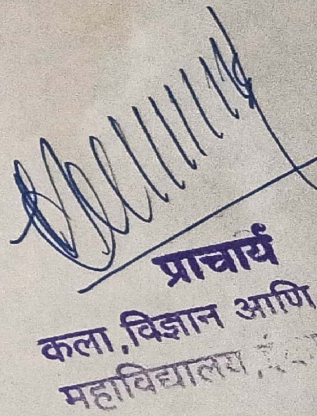 प्राचार्य
कला,विज्ञान आणि
महाविद्यालय,